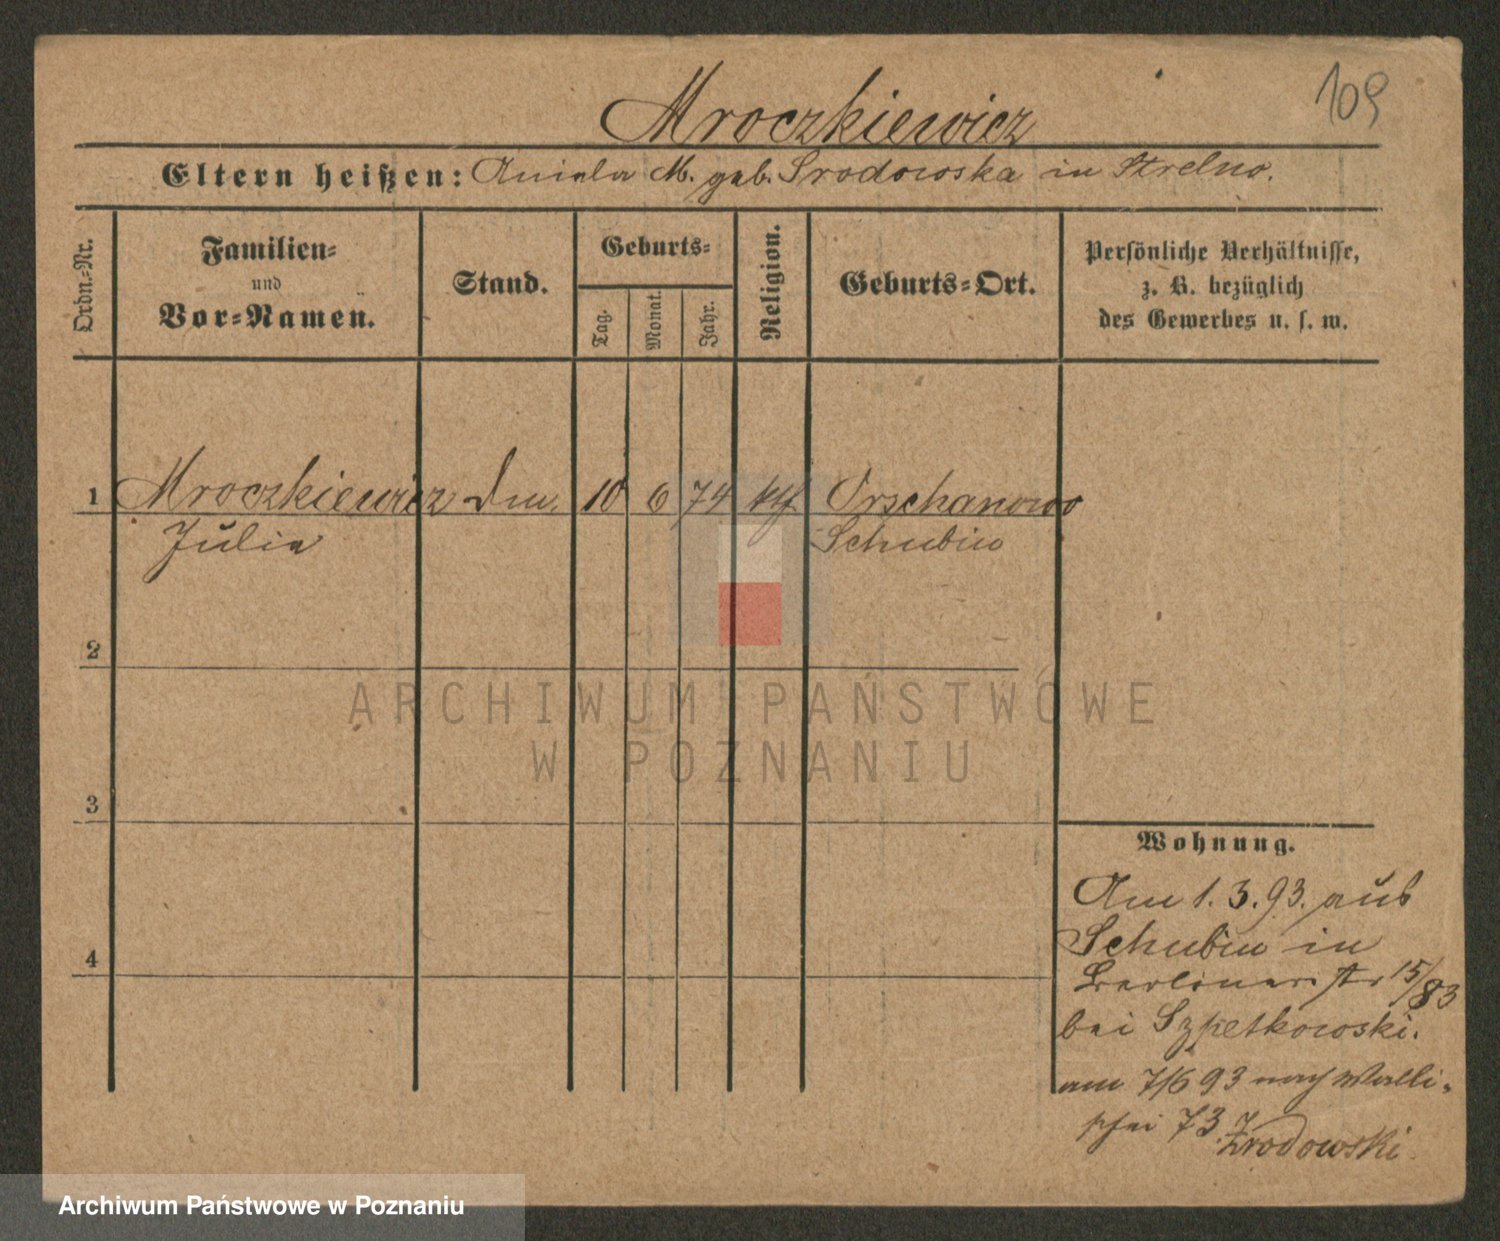 Mroczkiewicz
109
Eltern heißen: Aniela M. geb. Srodowska in Strelno.
Ordn.-Nr.
Familien-
und
Vor-Namen.
Stand.
Geburts-
Tag.
Monat.
Jahr.
Religion.
Geburts-Ort.
Persönliche Verhältnisse,
z. B. bezüglich
des Gewerbes u. s. w.
1 Mroczkiewicz 10 6 74 kth Orschanowo
Julia Schubin
2
3
4
Wohnung.
Am 1.3.93. aus
Schubin in
Berlinerstr 15/83
bei Szpetkowski.
am 7/6 93 nach Walli-
schei 73
Zrodowski.
ARCHIWUM PAŃSTWOWE
W POZNANIU
Archiwum Państwowe w Poznaniu